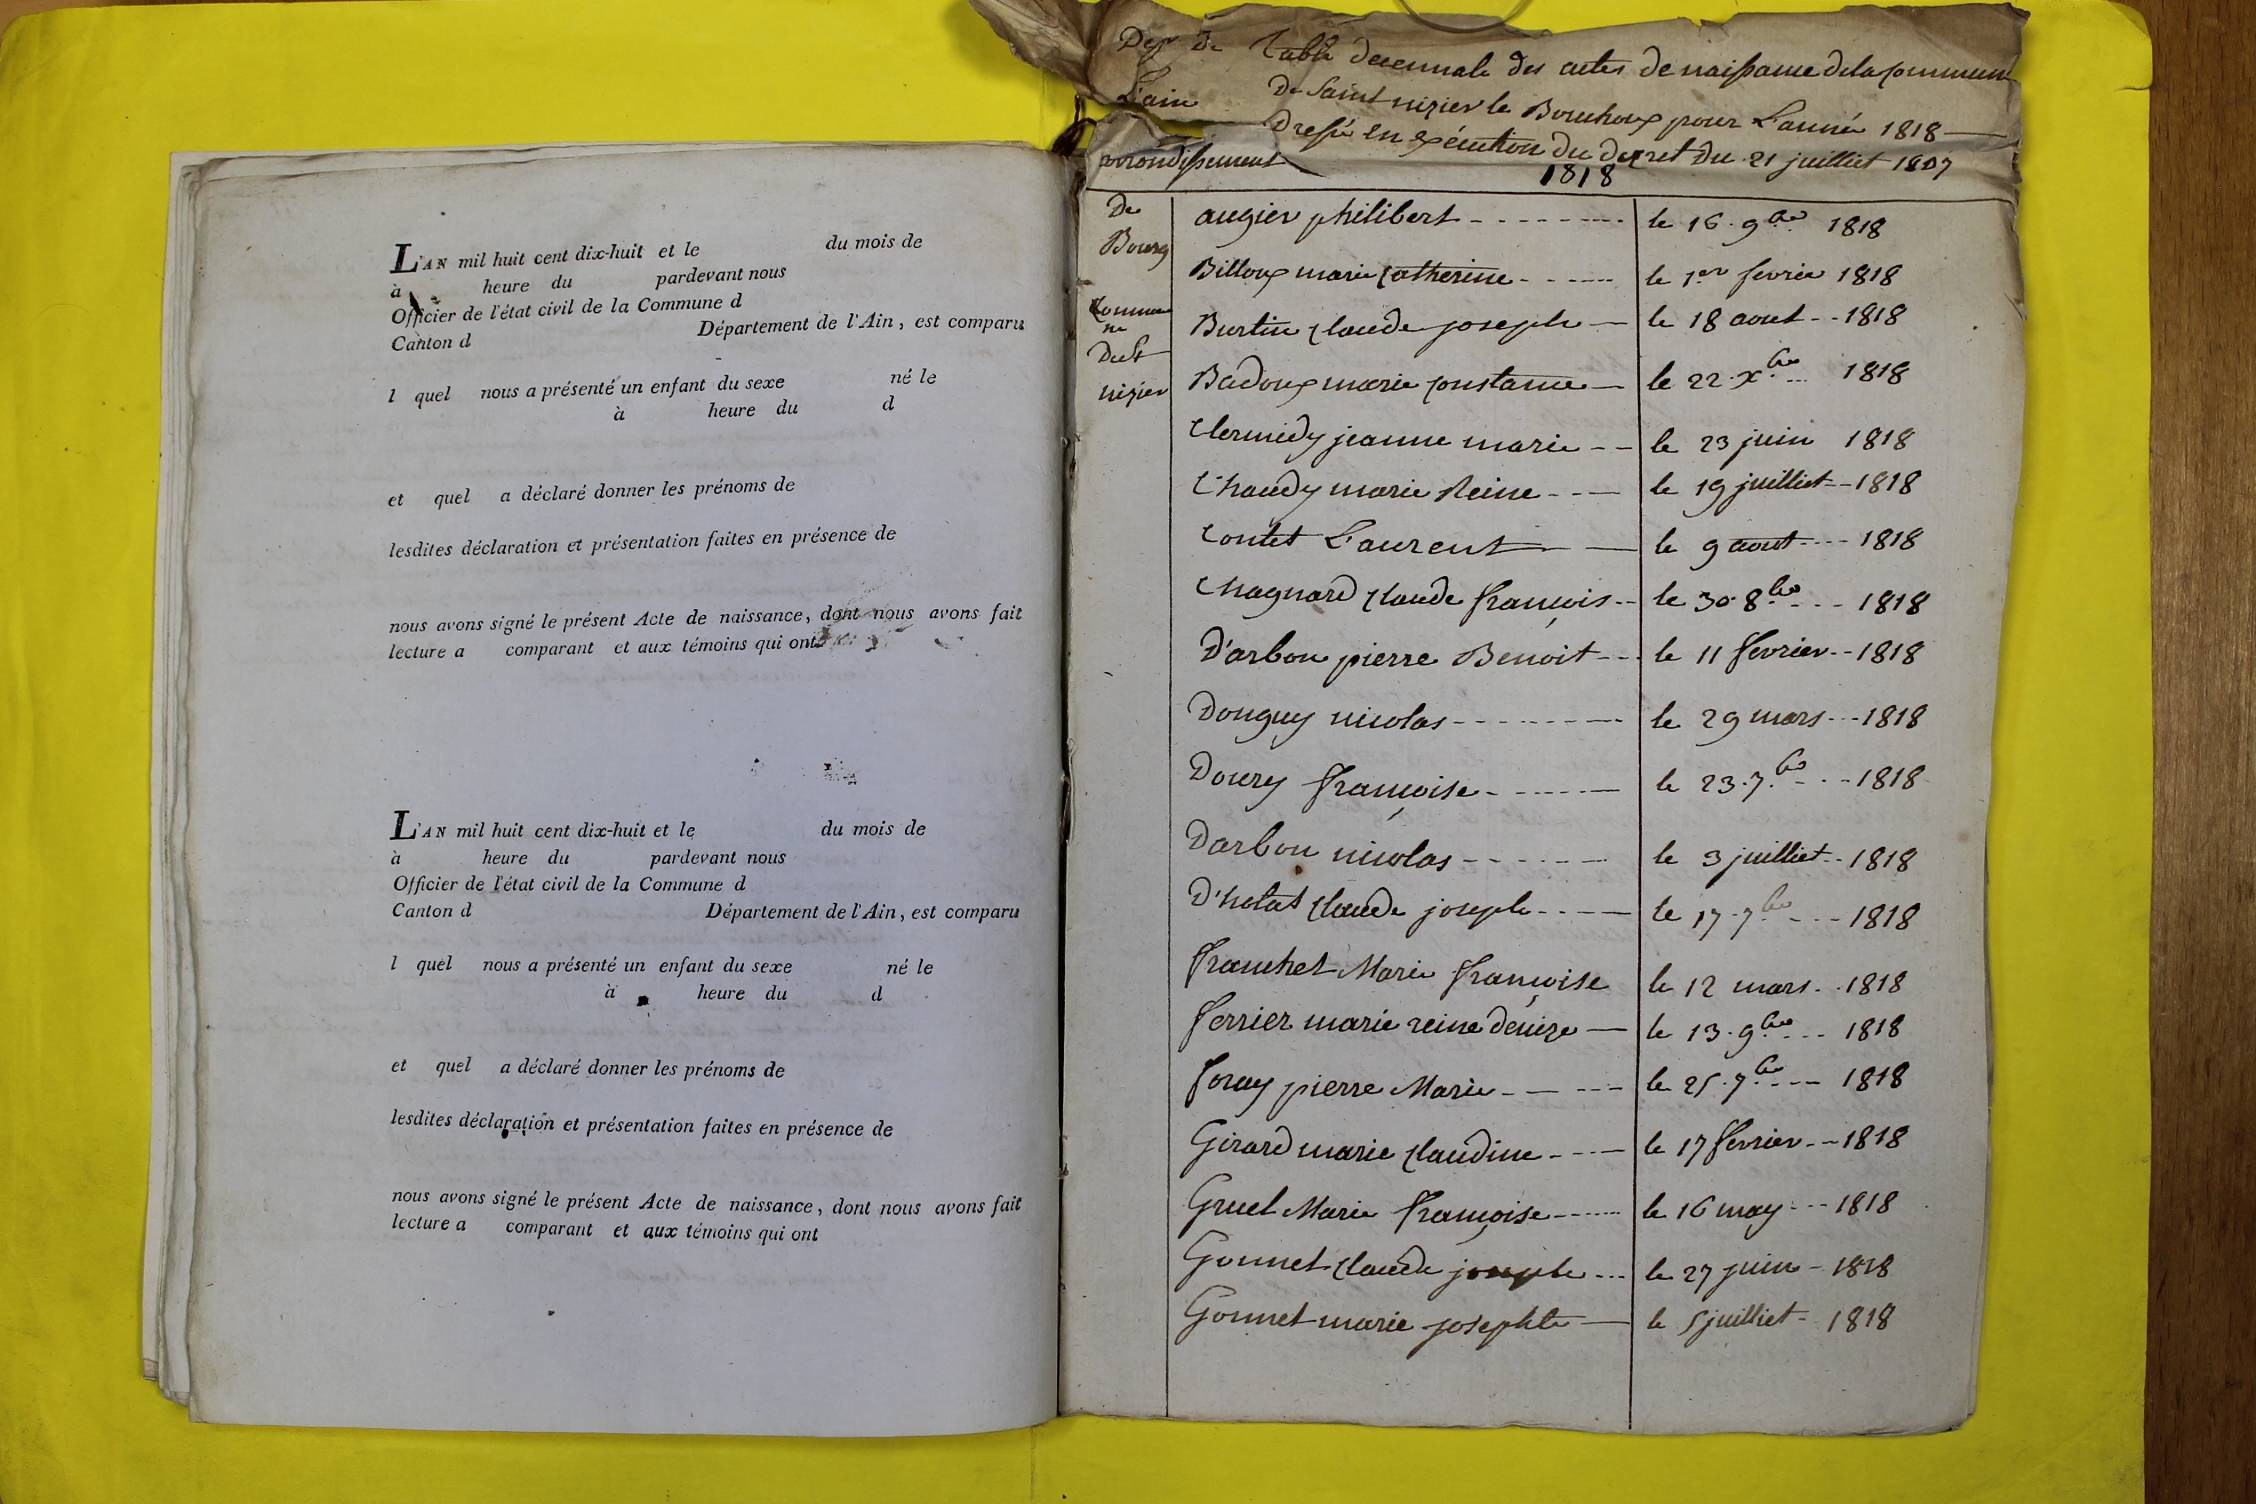 L'AN mil huit cent dix-huit et le du mois de
à heure du pardevant nous
Officier de l'état civil de la Commune d
Canton d Département de l'Ain, est comparu
l quel nous a présenté un enfant du sexe né le
à heure du d
et quel a déclaré donner les prénoms de
lesdites déclaration et présentation faites en présence de
nous avons signé le présent Acte de naissance, dont nous avons fait
lecture a comparant et aux témoins qui ont
L'AN mil huit cent dix-huit et le du mois de
à heure du pardevant nous
Officier de l'état civil de la Commune d
Canton d Département de l'Ain, est comparu
l quel nous a présenté un enfant du sexe né le
à heure du d
et quel a déclaré donner les prénoms de
lesdites déclaration et présentation faites en présence de
nous avons signé le présent Acte de naissance, dont nous avons fait
lecture a comparant et aux témoins qui ont
Dep.t De
L'ain
arrondissement
De
Bourg
Commu
ne
De St
nizier
Table decennale des actes de naissance de la Commune
De Saint nizier le Bouchoux pour L'année 1818
Dressé en exécution du decret du 21 juilliet 1807
1818
augier philibert le 16 9bre 1818
Billoux marie Catherine le 1er fevrier 1818
Burtin Claude joseph le 18 aout 1818
Badoux marie Constance le 22 Xbre 1818
Clermidy jeanne marie le 23 juin 1818
Chaudy marie Reine le 19 juilliet 1818
Contet Laurent le 9 aout 1818
Chagnard Claude françois le 30 8bre 1818
D'arbon pierre Benoit le 11 fevrier 1818
Donguy nicolas le 29 mars 1818
Doury françoise le 23 7bre 1818
Darbon nicolas le 3 juilliet 1818
D'hotat Claude joseph le 17 7bre 1818
franchet Marie françoise le 12 mars 1818
ferrier marie reine dénize le 13 9bre 1818
foray pierre Marie le 25 7bre 1818
Girard marie Claudine le 17 fevrier 1818
Gruel Marie françoise le 16 may 1818
Gonnet Claude joseph le 27 juin 1818
Gonnet marie josephte le 5 juilliet 1818